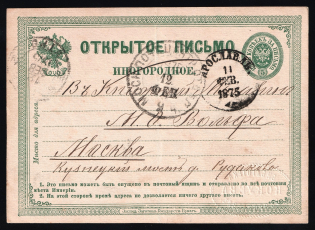 ОТКРЫТОЕ ПИСЬМО
ИНОГОРОДНОЕ.
ЯРОСЛАВЛЬ
11
ФЕВ.
1875
12
ФЕВ
Въ Книжный Магазинъ
М. О. Вольфа
Москва
Кузнецкій мостъ д. Рудакова
Мѣсто для адреса:
1. Это письмо можетъ быть опущено въ почтовый ящикъ и отправлено во всѣ почтовыя мѣста Имперіи.
2. На этой сторонѣ кромѣ адреса не дозволяется ничего другаго писать.